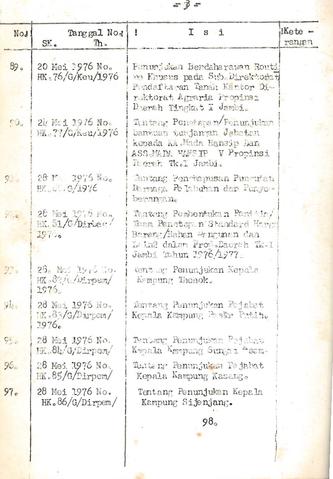 - 3 -
No.
Tanggal No.
SK. Th.
! I s i
Kete-
rangan
89.
20 Mei 1976 No.
HK.76/G/Keu/1976
Penunjukan Bendaharawan Routi
ne Khusus pada Sub.Direktorat
Pendaftaran Tanah Kantor Di-
rektorat Agraria Propinsi
Daerah Tingkat I Jambi.
90.
24 Mei 1976 No.
HK.77/G/Keu/1976
Tentang Penetapan/Penunjukan
bantuan tunjangan Jabatan
kepada KA.Mada Hansip Dan
ASS.MADA HANSIP V Propinsi
Daerah Tk.I Jambi.
26 Mei 1976 No.
1976
Tentang Penghapusan
Dermaga Pelabuhan dan Penye-
berangan.
26 Mei 1976 No.
HK.81/G/Dirpem/
1976.
Tentang Pembentukan Panitia/
Team Penetapan Standard Harga
Barang/Bahan Bangunan dan
lain2 dalam Prop.Daerah Tk.I
Jambi Tahun 1976/1977.
93.
28. Mei 1976 No.
/G/Dirpem/
tentang Penunjukan Kepala
Kampung
94.
28 Mei 1976 No.
/G/Dirpem/
1976.
Tentang Penunjukan Pejabat
Kepala Kampung Pasir Putih.
95.
28 Mei 1976 No.
HK.84/G/Dirpem/
Tentang Penunjukan Pejabat
Kepala Kampung Sungai
96.
28 Mei 1976 No.
HK.85/G/Dirpem/
Tentang Penunjukan Pejabat
Kepala Kampung Kasang.
97.
28 Mei 1976 No.
HK.86/G/Dirpem/
Tentang Penunjukan Kepala
Kampung Sijenjang.
98.